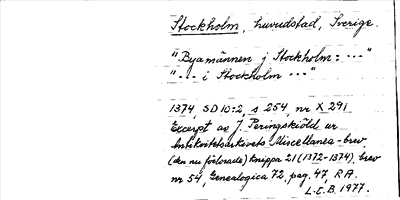 Stockholm, huvudstad, Sverige.
"Byamännen j Stockholm: ..."
"... i Stockholm ..."
1374, SD 10:2, s 254, nr X 291
Excerpt av J. Peringskiöld ur
Antikvitetsarkivets Miscellanea-brev
(den nu förlorade) knippa 21 (1372-1374), brev
nr 54, Genealogica 72, pag. 47, R.A.
L.E.B. 1977.